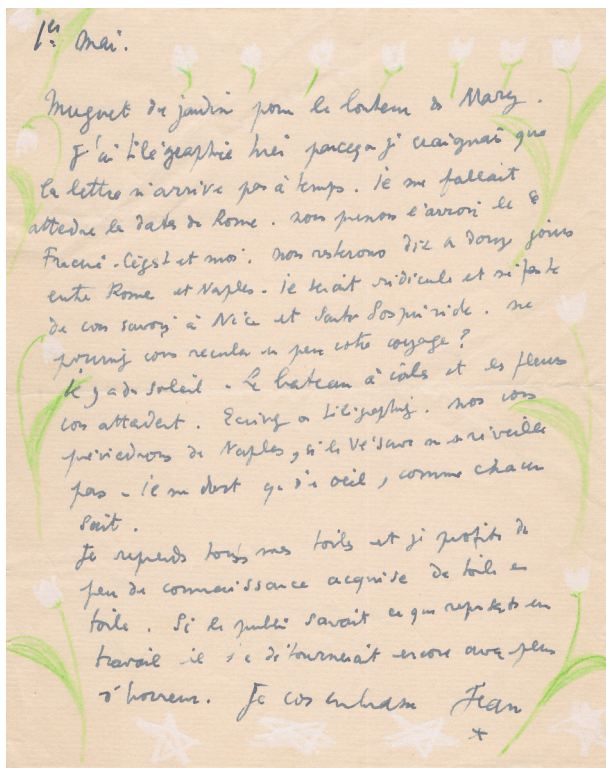 1er Mai.
Muguet du jardin pour le bonheur de Mary.
J'ai télégraphié hier parce que je craignais que
la lettre n'arrive pas à temps. Il me fallait
attendre la date de Rome. Nous prenons l'avion le 8
Francine - Cégeste et moi. Nous resterons dix à douze jours
entre Rome et Naples. Il serait ridicule et néfaste
de vous savoir à Nice et Santo Sospir vide. Ne
pourriez vous reculer un peu votre voyage?
Il y a du soleil - Le bateau à voiles et les fleurs
vous attendent. Ecrivez ou télégraphiez. Nous vous
préviendrons de Naples, si le Vésuve ne se réveille
pas - Il ne dort que d'un oeil, comme chacun
sait.
Je reprends toutes mes toiles et je profite du
peu de connaissance acquise de toile en
toile. Si le public savait ce que représente un
travail il s'en détournerait encore avec plus
d'horreur. Je vous embrasse Jean